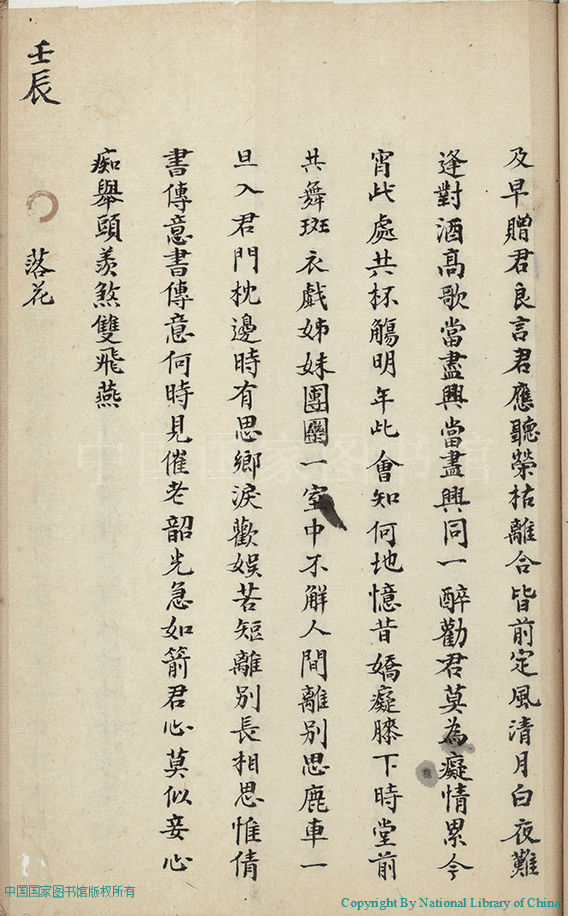 及早贈君良言君應聽榮枯離合皆前定風清月白夜難
逢對酒高歌當盡興當盡興同一醉勸君莫為癡情累今
宵此處共杯觴明年此會知何地憶昔嬌癡膝下時堂前
共舞斑衣戲姊妹團圞一室中不解人間離別思鹿車一
旦入君門枕邊時有思鄉淚歡娛苦短離別長相思惟倩
書傳意書傳意何時見催老韶光急如箭君心莫似妾心
痴舉頭羨煞雙飛燕
壬辰
落花
中国国家图书馆
中国国家图书馆版权所有
Copyright By National Library of China